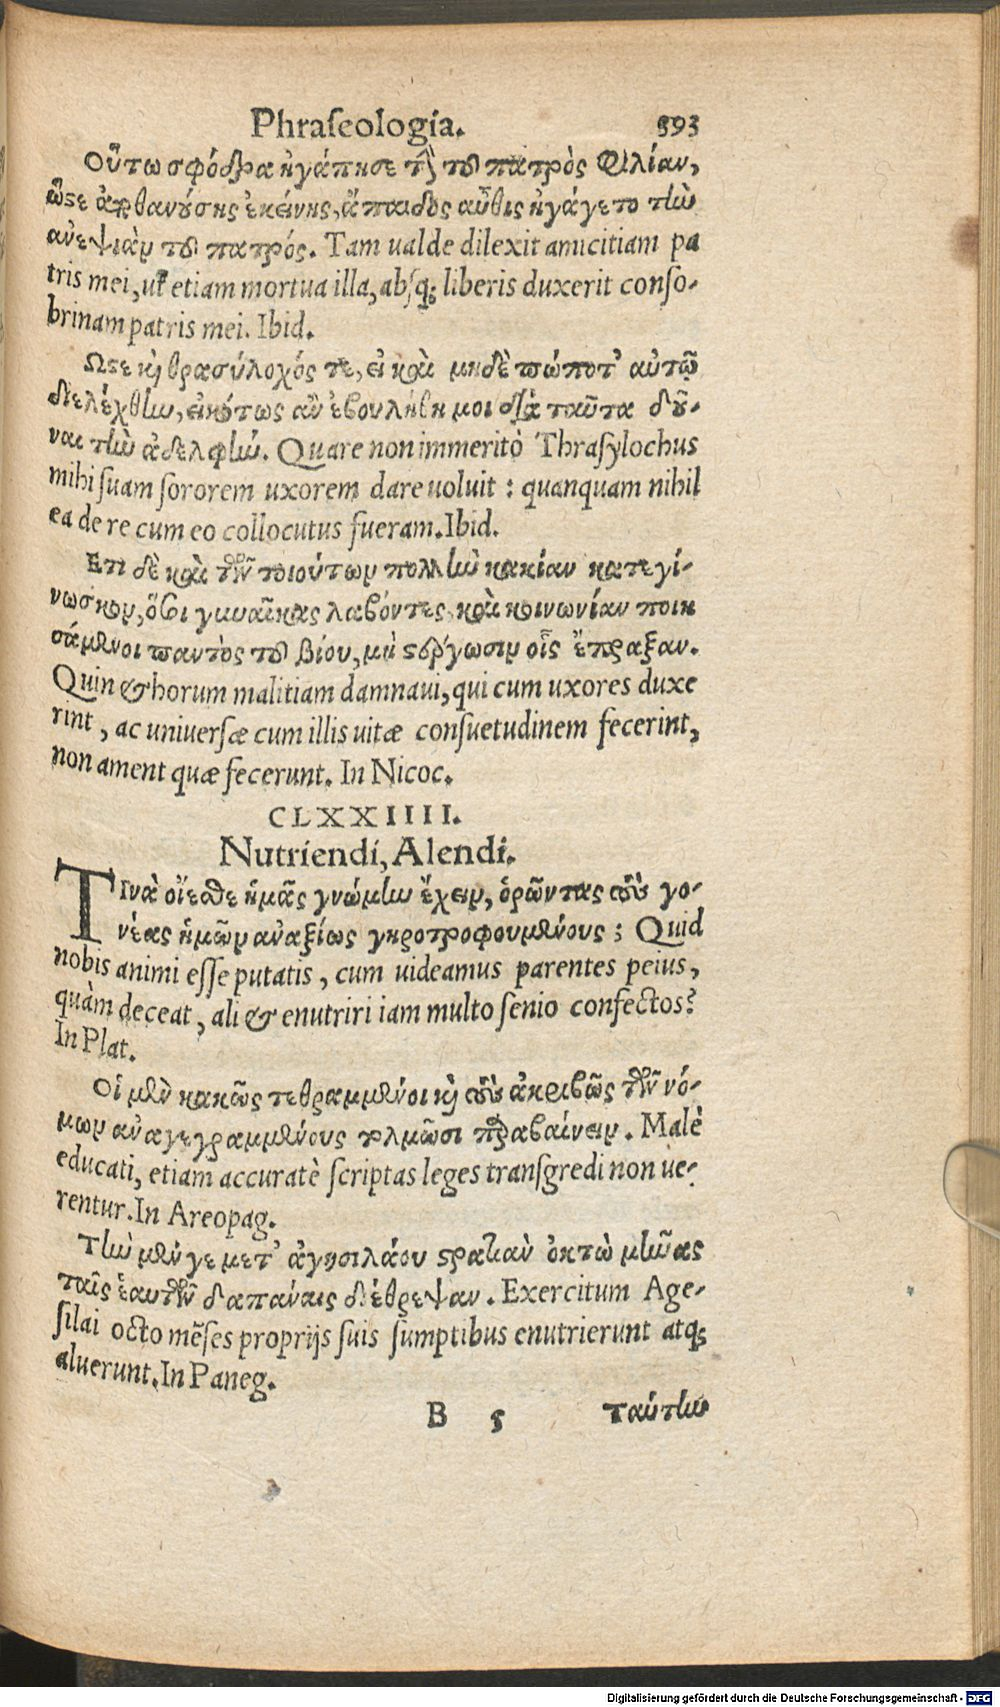 Phraſeologia. 593
Οὕτω σφόδρα ἠγάπησε τὴν τοῦ πατρὸς φιλίαν,
ὥστε ἀποθανούσης ἐκείνης, ἄπαιδος αὖθις ἠγάγετο τὴν
ἀνεψιὰν τοῦ πατρός. Tam ualde dilexit amicitiam pa
tris mei, ut etiam mortua illa, abſq; liberis duxerit conſo-
brinam patris mei. Ibid.
Ωστε καὶ θρασύλοχός τε, εἰ καὶ μηδὲ πώποτ' αὐτῷ
διελέχθην, εἰκότως ἂν ἐβουλήθη μοι διὰ ταῦτα δοῦ-
ναι τὴν ἀδελφήν. Quare non immeritò Thraſylochus
mihi ſuam ſororem uxorem dare uoluit : quanquam nihil
ea de re cum eo collocutus fueram. Ibid.
Ετι δὲ καὶ τῶν τοιούτων πολλὴν κακίαν κατεγί-
νωσκον, ὅσοι γυναῖκας λαβόντες, καὶ κοινωνίαν ποιη
σάμενοι παντὸς τοῦ βίου, μὴ στέργωσιν οἷς ἔπραξαν.
Quin & horum malitiam damnaui, qui cum uxores duxe
rint, ac uniuerſæ cum illis uitæ conſuetudinem fecerint,
non ament quæ fecerunt. In Nicoc.
CLXXIIII.
Nutriendi, Alendi.
Τινὰ οἴεσθε ἡμᾶς γνώμην ἔχειν, ὁρῶντας τοὺς γο-
νέας ἡμῶν ἀναξίως γηροτροφουμένους; Quid
nobis animi eſſe putatis, cum uideamus parentes peius,
quàm deceat, ali & enutriri iam multo ſenio confectos?
In Plat.
Οἱ μὲν κακῶς τεθραμμένοι καὶ τοὺς ἀκριβῶς τῶν νό-
μων ἀναγεγραμμένους τολμῶσι παραβαίνειν. Malè
educati, etiam accuratè ſcriptas leges tranſgredi non ue-
rentur. In Areopag.
Τὴν μέν γε μετ' ἀγησιλάου στρατιὰν ὀκτὼ μῆνας
ταῖς ἑαυτῶν δαπάναις διέθρεψαν. Exercitum Age-
ſilai octo mẽſes proprijs ſuis ſumptibus enutrierunt atq;
aluerunt. In Paneg.
B 5 ταύτην
Digitalisierung gefördert durch die Deutsche Forschungsgemeinschaft - DFG